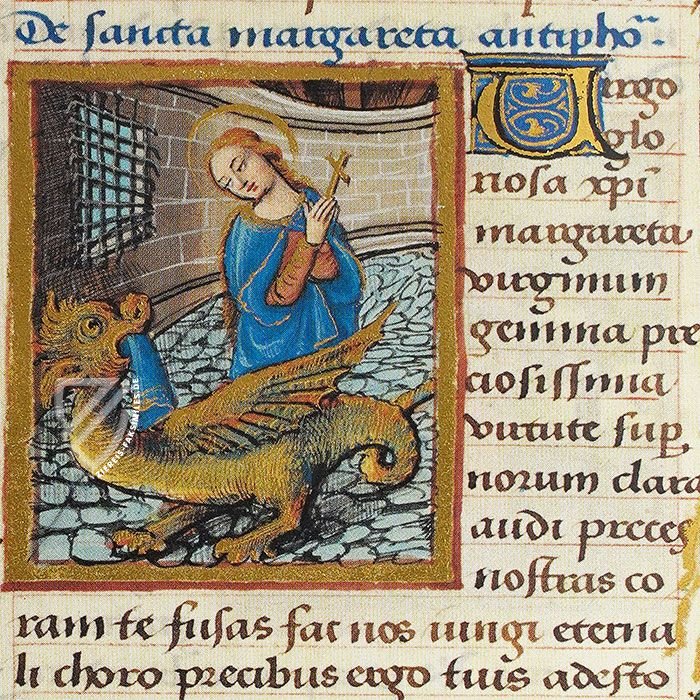 De sancta margareta antiphõ.
Uirgo
glo
riosa xpi
margareta
virginum
gemma pre
ciosissima
virtute sup
norum clara
audi preces
nostras co
ram te fusas fac nos iungi eterna
li choro precibus ergo tuis adesto